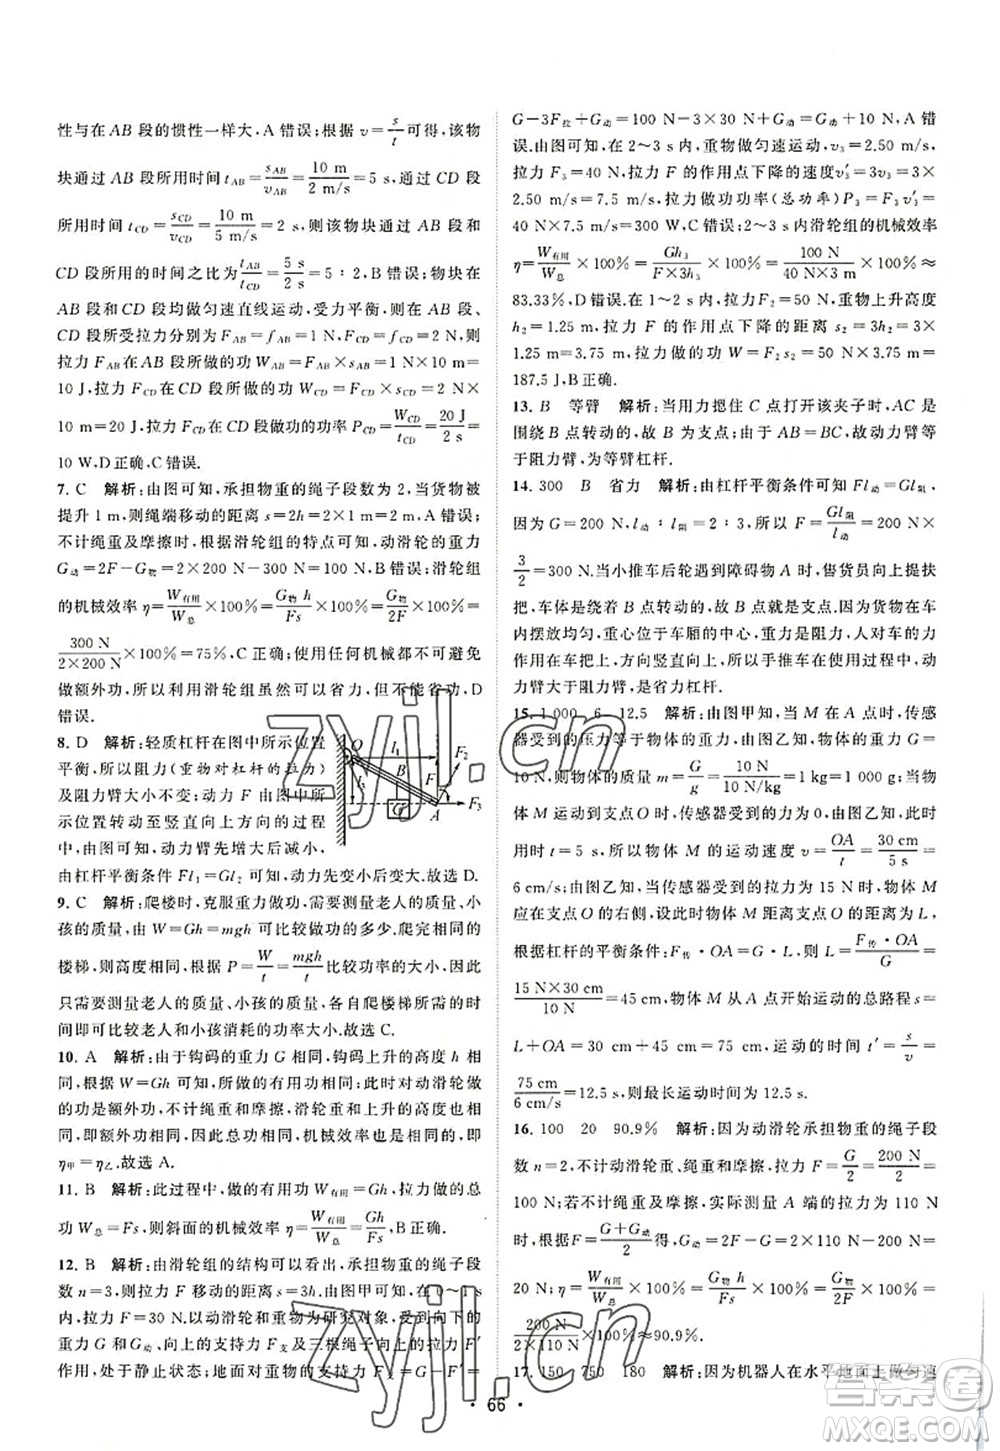 性与在 AB 段的惯性一样大,A 错误;根据 v=s/t 可得,该物
块通过 AB 段所用时间 t_AB=s_AB/v_AB=10 m/2 m/s=5 s,通过 CD 段
所用时间 t_CD=s_CD/v_CD=10 m/5 m/s=2 s,则该物块通过 AB 段和
CD 段所用的时间之比为 t_AB/t_CD=5 s/2 s=5∶2,B 错误;物块在
AB 段和 CD 段均做匀速直线运动,受力平衡,则在 AB 段和
CD 段所受拉力分别为 F_AB=f_AB=1 N,F_CD=f_CD=2 N,则
拉力 F_AB在 AB 段所做的功 W_AB=F_AB×s_AB=1 N×10 m=
10 J,拉力 F_CD在 CD 段所做的功 W_CD=F_CD×s_CD=2 N×
10 m=20 J,拉力 F_CD在 CD 段所做的功的功率 P_CD=W_CD/t_CD=20 J/2 s=
10 W,D 正确,C 错误.
7. C 解析:由图可知,承担物重的绳子段数为 2,物体被
提升 1 m,则绳端移动的距离 s=2h=2×1 m=2 m,A 错误;
不计绳重及摩擦时,根据滑轮组的特点可知,动滑轮的重力
G动=2F-G物=2×200 N-300 N=100 N,B 错误;滑轮组
的机械效率 η=W有用/W总×100%=G物 h/Fs×100%=G物/2F×100%=
300 N/2×200 N×100%=75%,C 正确;使用任何机械都不可避免
做额外功,所以利用滑轮组虽然省力,但不能省功,D
错误.
8. D 解析:轻质杠杆在图中所示位置
平衡,所以阻力(重物对杠杆的拉力)
及阻力臂大小不变;动力 F 由图中所
示位置转动至竖直向上方向的过程
中,由图可知,动力臂先增大后减小,
由杠杆平衡条件 Fl₁=Gl₂可知,动力先变小后变大.故选 D.
O l₁ F₂ B F l₃ G A F₃
9. C 解析:爬楼时,克服重力做功,需要测量老人的质量、小
孩的质量,由 W=Gh=mgh 可以比较做功的多少.爬完相同的
楼梯,则高度相同,根据 P=W/t=mgh/t比较功率的大小,因此
只需要测量老人的质量、小孩的质量、各自爬楼梯所用的时
间即可比较老人和小孩消耗的功率大小.故选 C.
10. A 解析:由于钩码的重力 G 相同,钩码上升的高度 h 相
同,根据 W=Gh 可知,有用功相同,此时对动滑轮做的功
是额外功,不计绳重和摩擦,滑轮重和上升的高度相同,所
以甲、乙的额外功相同,总功也相同,机械效率也相同,即
η甲=η乙.故选 A.
11. B 解析:此过程中,做的有用功 W有用=Gh,拉力做的总
功 W总=Fs,则斜面的机械效率 η=W有用/W总=Gh/Fs,B 正确.
12. B 解析:由滑轮组的结构可以看出,承担物重的绳子段
数n=3,则拉力 F 移动的距离 s=3h.由图甲可知,在0~1 s
内,拉力 F=30 N.以动滑轮和重物为研究对象,受向下的
重力 G 和 G动、向上的支持力 F支及三根绳子向上的拉力 F′
作用,处于静止状态;地面对重物的支持力 F支=G-F′=
G-3F拉+G动=100 N-3×30 N+G动=10 N+G动,A 错
误.由图可知,在 2~3 s 内,重物做匀速运动,v₃=2.50 m/s,
拉力 F₃=40 N,拉力 F 的作用点下降的速度v₃′=3v₃=3×
2.50 m/s=7.5 m/s,拉力做功功率(总功率)P₃=F₃v₃′=
40 N×7.5 m/s=300 W,C 错误;2~3 s 内滑轮组的机械效率
η=W有用/W总×100%=Gh₃/F×3h₃×100%=100 N/40 N×3×100%≈
83.33%,D 错误.在 1~2 s 内,拉力F₂=50 N,重物上升高度
h₂=1.25 m,拉力 F 的作用点下降的距离 s₂=3h₂=3×
1.25 m=3.75 m,拉力做的功 W=F₂s₂=50 N×3.75 m=
187.5 J,B 正确.
13. B 等臂 解析:当用力摁住 C 点打开该夹子时,AC 是
围绕 B 点转动的,故 B 为支点;由于 AB=BC,故动力臂等
于阻力臂,为等臂杠杆.
14. 300 B 省力 解析:由杠杆平衡条件可知 Fl动=Gl阻,
因为 G=200 N,l动∶l阻=2∶3,所以 F=Gl阻/l动=200 N×
3/2=300 N.当小推车后轮遇到障碍物 A 时,售货员向下按
把手,车体是绕着 B 点转动的,故 B 点是支点.因为货物在车
内摆放均匀,重心位于车厢的中心,重力是阻力,人对车的力
作用在车把上,方向竖直向上,所以手推车在使用过程中,
动力臂大于阻力臂,是省力杠杆.
15. 1 000 6 12.5 解析:由图甲知,当 M 在 A 点时,传感
器受到的压力等于物体的重力,由图乙知,此时 F=G=
10 N,则物体的质量 m=G/g=10 N/10 N/kg=1 kg=1 000 g;当物
体 M 运动到支点O 时,传感器受到的力为 0,由图乙知,此
时 t=5 s,所以物体 M 的运动速度 v=OA/t=30 cm/5 s=
6 cm/s;由图乙知,当传感器受到的拉力为 15 N时,物体 M
应在 O 的右侧,设此时物体 M 到O 点的距离为 L,
根据杠杆的平衡条件:F传·OA=G·L,则 L=F传·OA/G=
15 N×30 cm/10 N=45 cm,物体 M 从 A 点开始运动的总路程 s=
L+OA=30 cm+45 cm=75 cm,运动的时间 t′=s/v=
75 cm/6 cm/s=12.5 s,则最长运动时间为 12.5 s.
16. 100 20 90.9% 解析:因为动滑轮承担物重的绳子段
数 n=2,不计动滑轮重、绳重和摩擦,拉力 F=G/2=200 N/2=
100 N;若不计绳重及摩擦,实际测量 A 端的拉力为 110 N,
因为F=G+G动/2,则动滑轮重力G动=2F-G=2×110 N-200 N=
20 N;η=W有用/W总×100%=G物h/Fs×100%=G物/2F×100%=
200 N/2×110 N×100%≈90.9%.
17. 150 750 180 解析:因为机器人在水平地面上做匀速
· 66 ·
zyjl.cn
zyjl.cn
答案圈
MXQE.COM